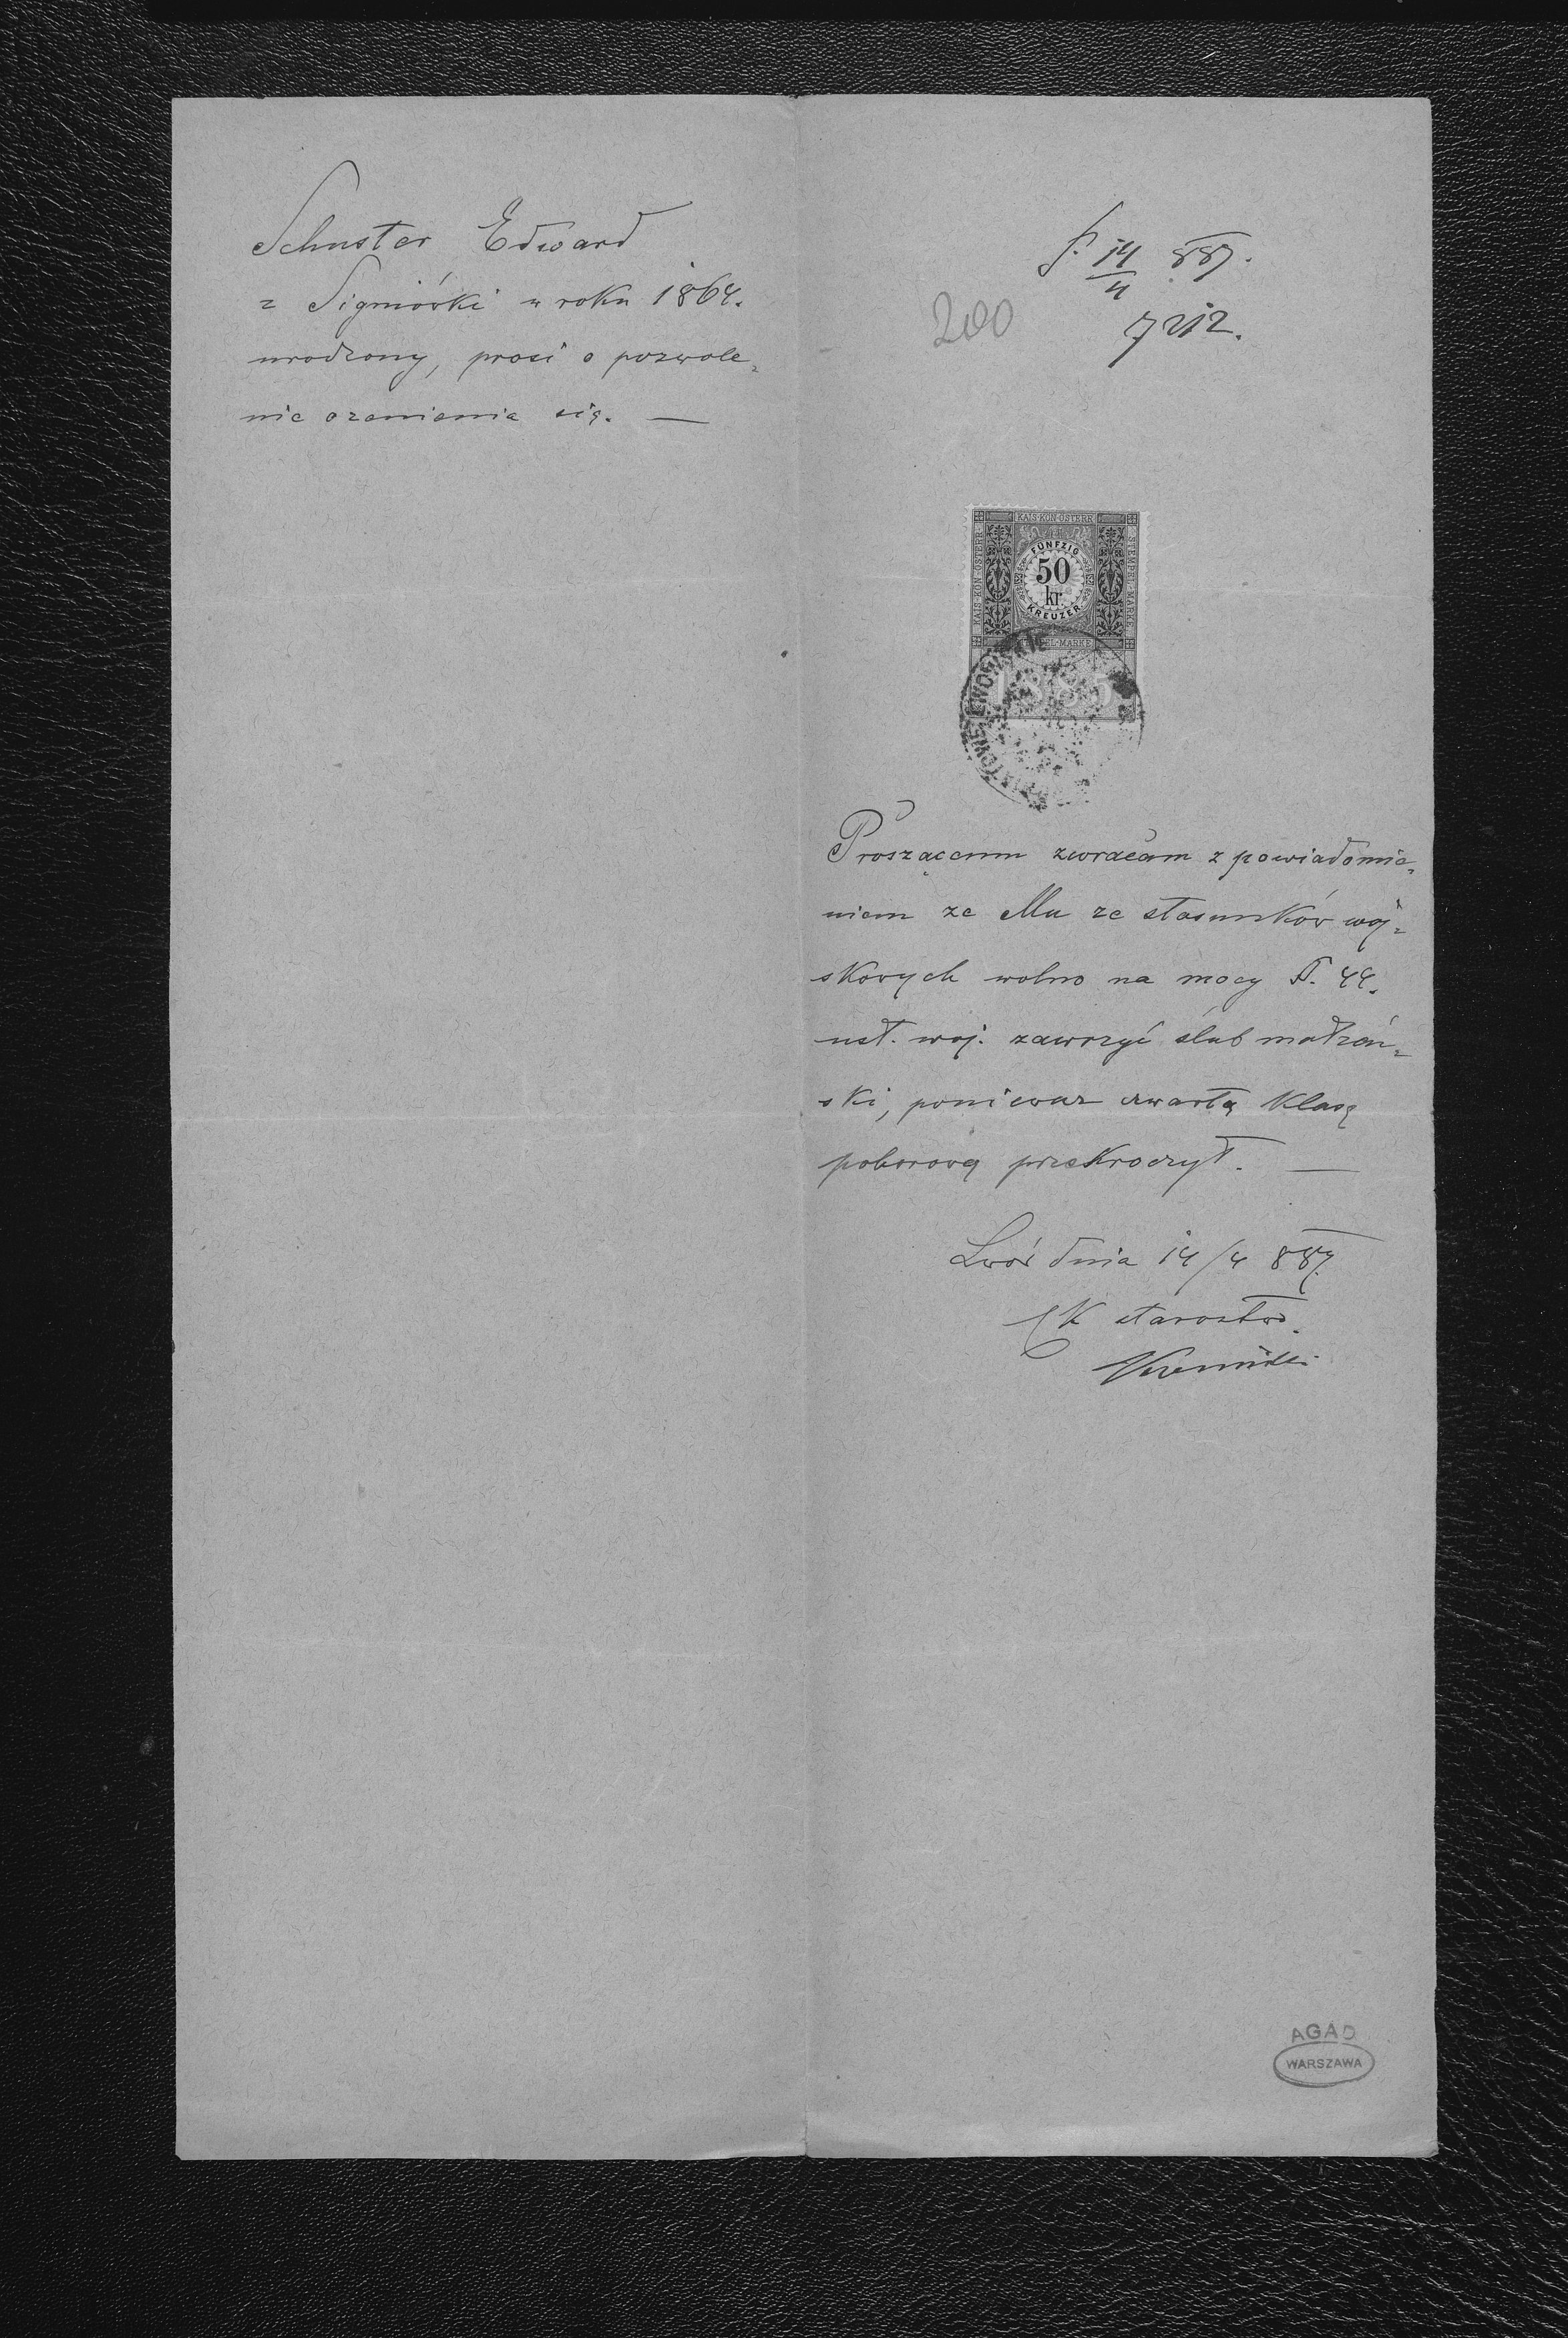 Schuster Edward
z Signiówki w roku 1864.
urodzony, prosi o pozwole=
nie ozenienia się. —
P. 14/4 887.
200
7212.
KAIS·KÖN·ÖSTERR
KAIS·KÖN·ÖSTERR·
STEMPEL-MARKE
FÜNFZIG
50
kr.
KREUZER
1885
Proszącemu zwracam z powiadomie=
niem ze Mu ze stosunków woj=
skowych wolno na mocy §. 44.
ust. woj. zawrzyć ślub małżeń=
ski, poniewaz czwartą Klasę
poborową przekroczył. —
Lwów dnia 14/4 887.
CK starostwo.
AGAD
WARSZAWA